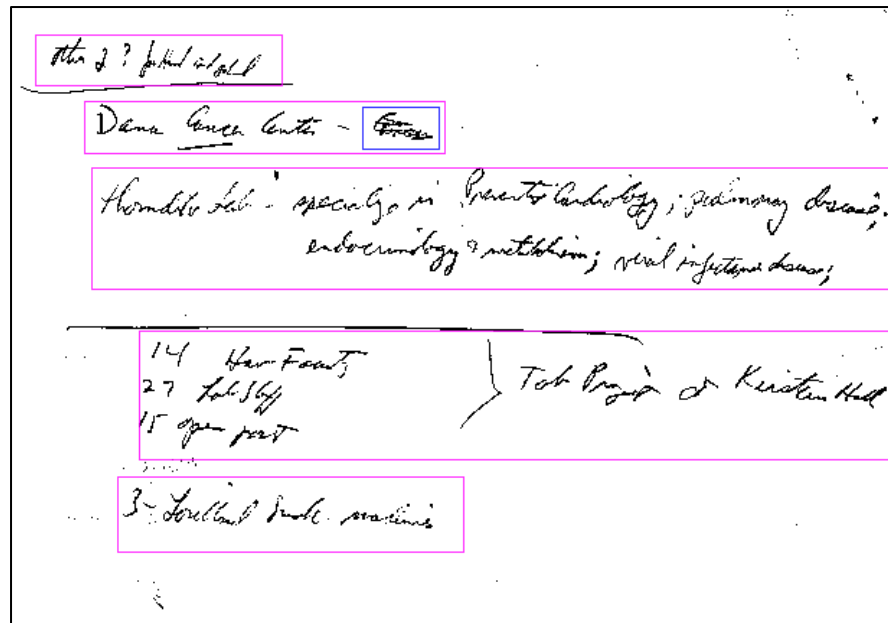 Other 2?
Dana Cancer Center -
Thorndike Lab - specialize in Preventive Cardiology; pulmonary disease;
endocrinology & metabolism; viral infectious disease;
14 Har Faculty
27 Lab Staff
15 open part
Tob Project at Kirstein Hall
3 - Lorillard Smok. machines